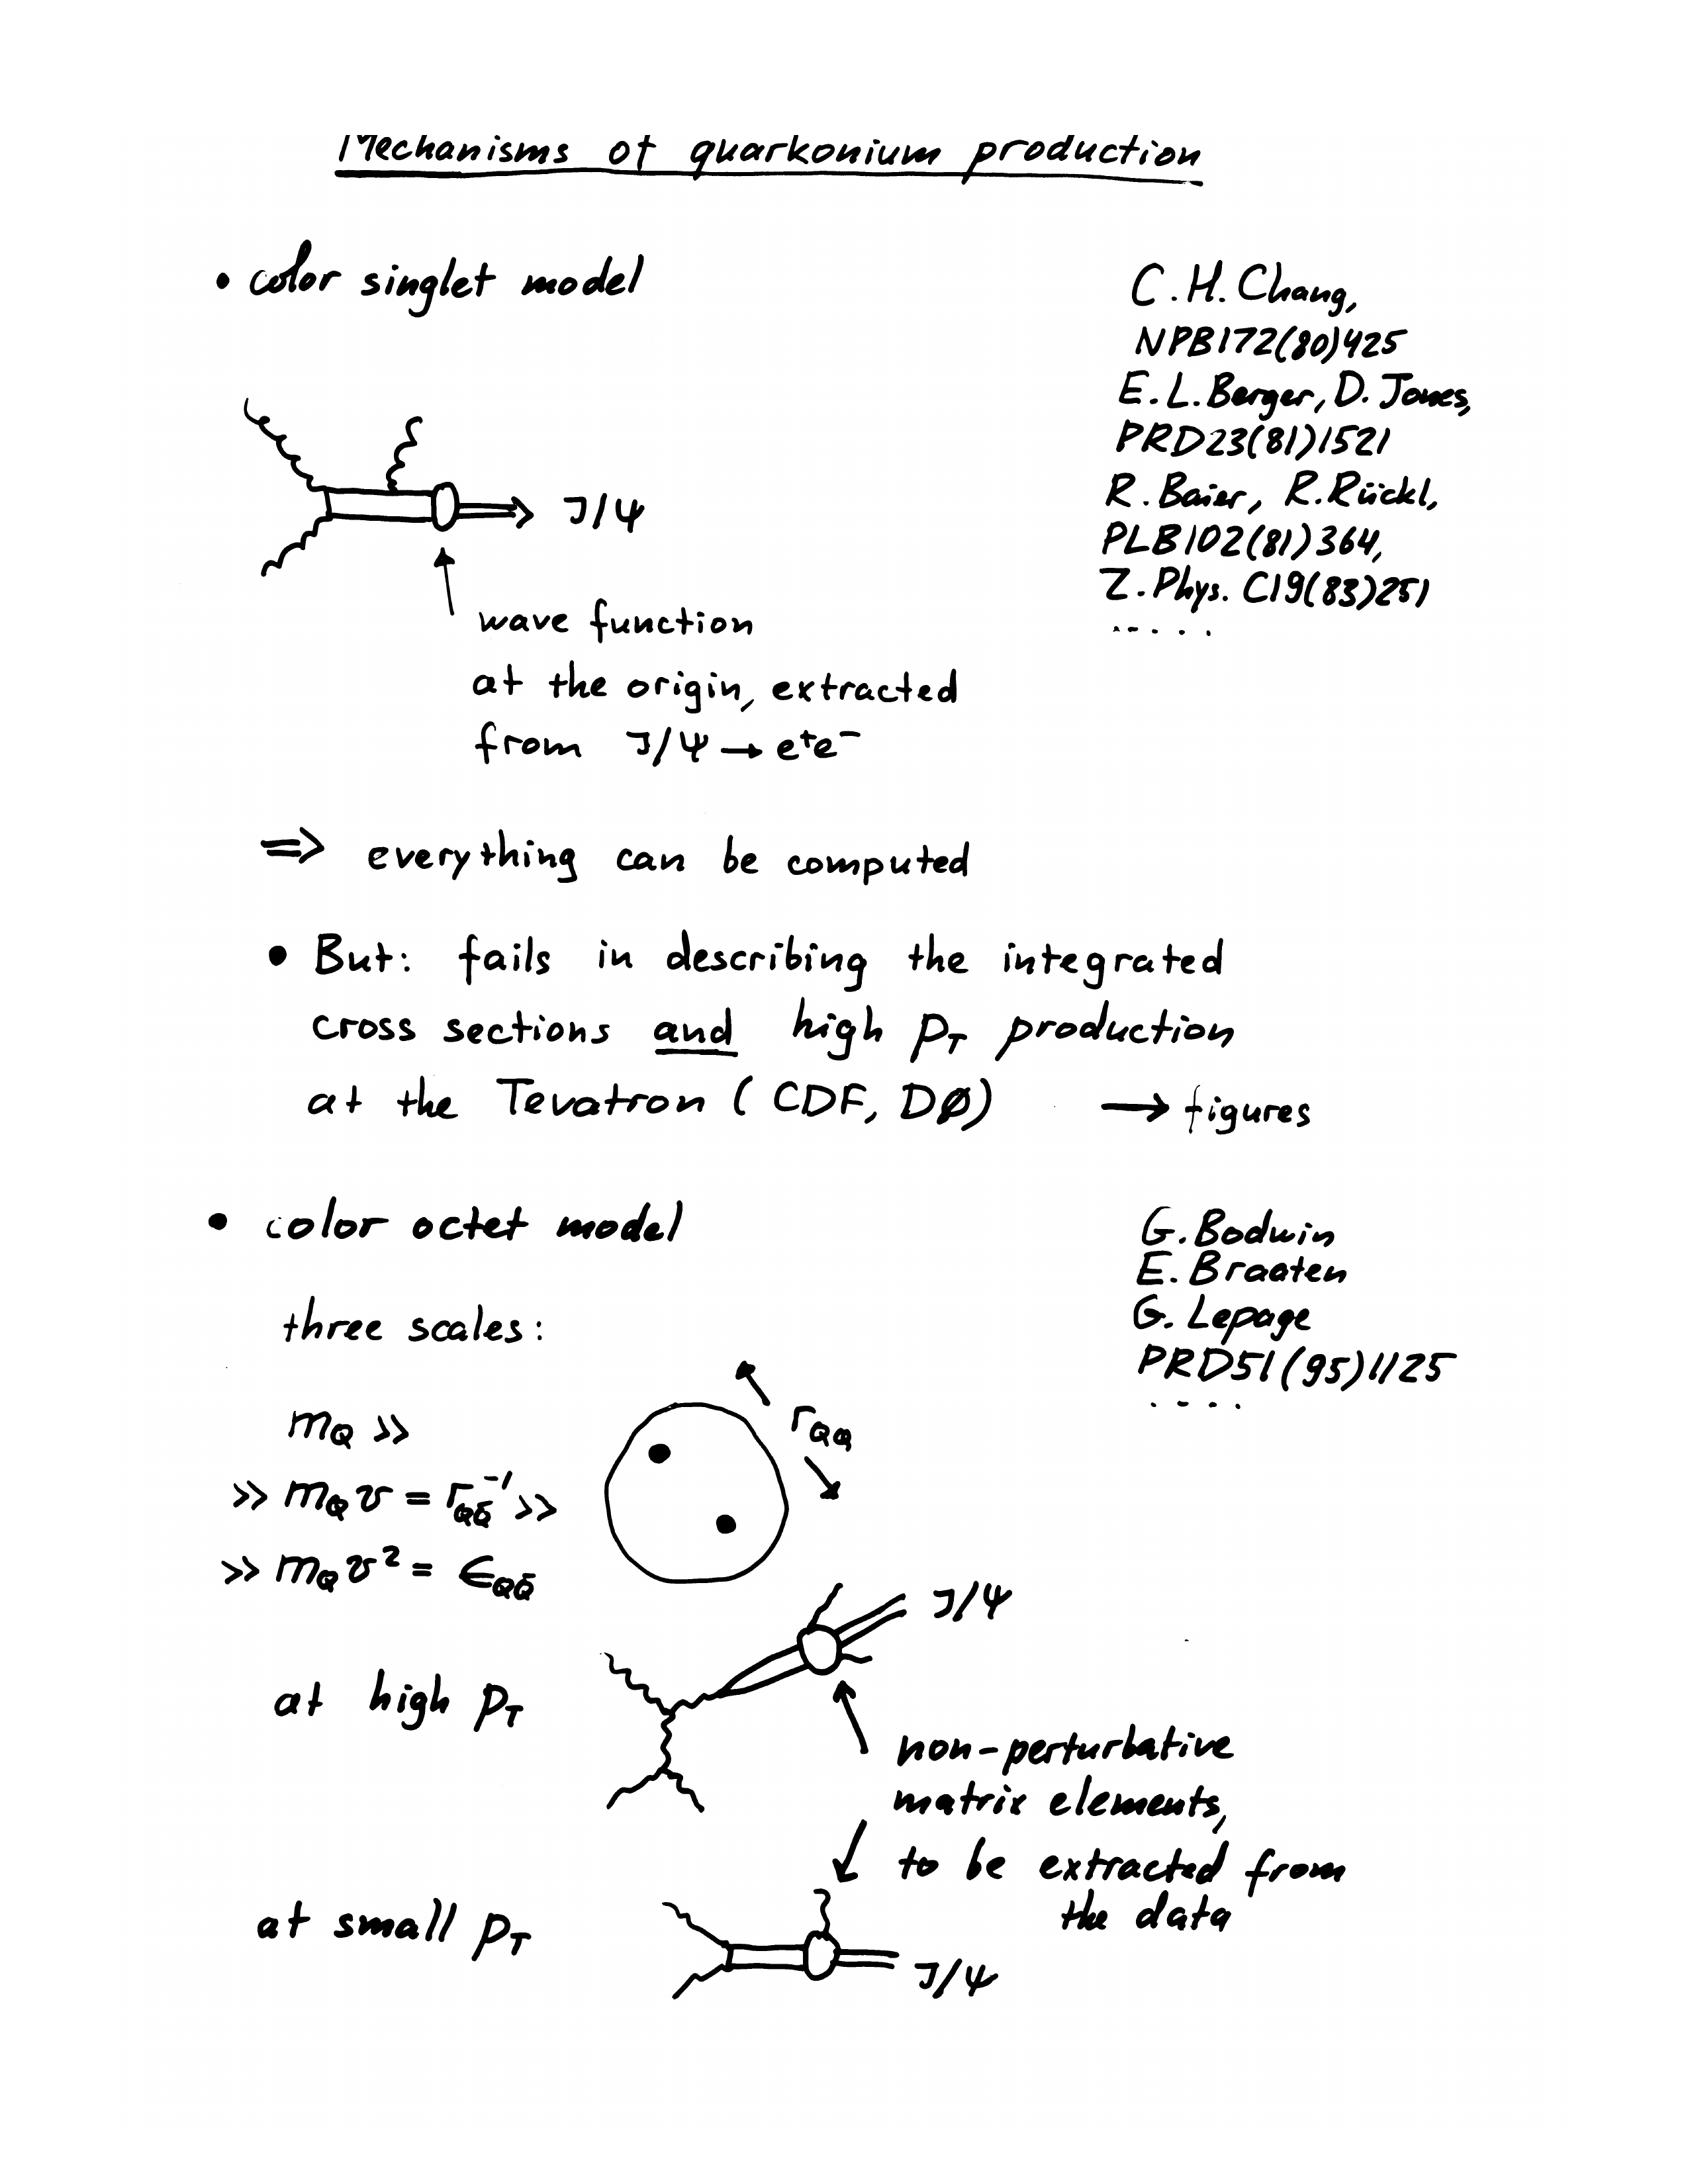 Mechanisms of quarkonium production
• color singlet model
C.H. Chang,
NPB172(80)425
E.L. Berger, D. Jones,
PRD23(81)1521
R. Baier, R. Rückl,
PLB102(81)364,
Z. Phys. C19(83)251
.....
J/Ψ
wave function
at the origin, extracted
from J/Ψ → e⁺e⁻
⇒ everything can be computed
• But: fails in describing the integrated
cross sections and high p_T production
at the Tevatron (CDF, DØ) → figures
• color octet model
G. Bodwin
E. Braaten
G. Lepage
PRD51(95)1125
....
three scales:
m_Q >>
>> m_Q v = r_QQ̄⁻¹ >>
>> m_Q v² = ϵ_QQ̄
r_QQ
J/Ψ
at high p_T
non-perturbative
matrix elements,
to be extracted from
the data
at small p_T
J/Ψ